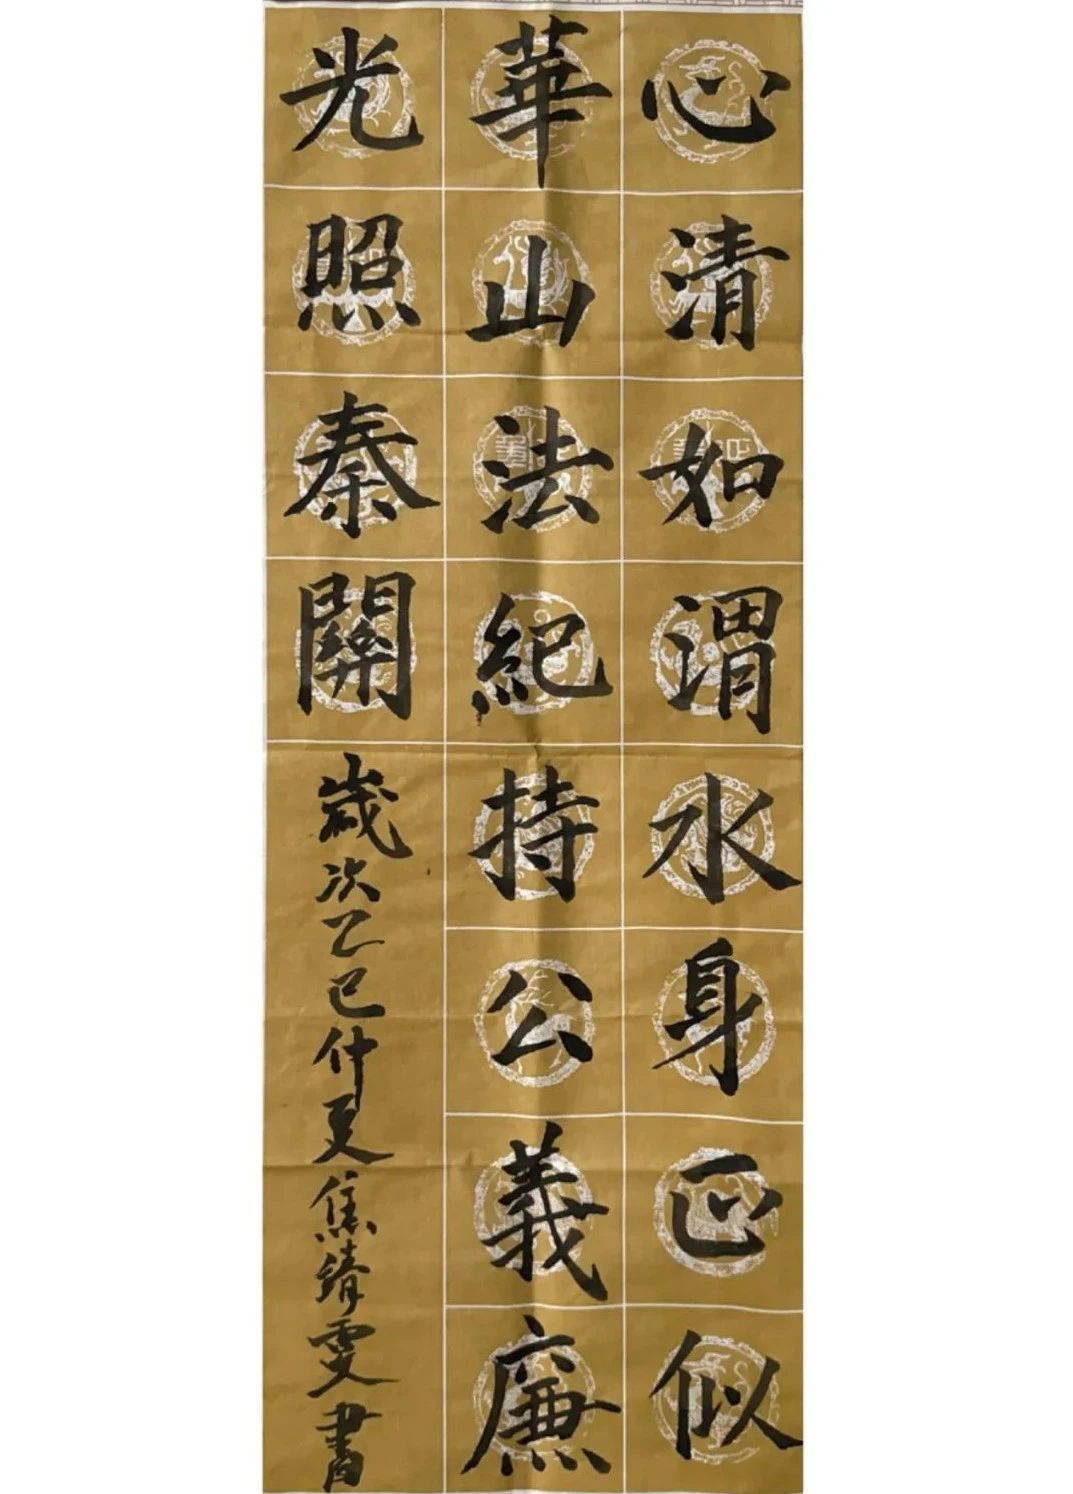 心清如渭水身正似
華山法紀持公義廉
光照秦關
歲次乙巳仲夏焦靖雯書